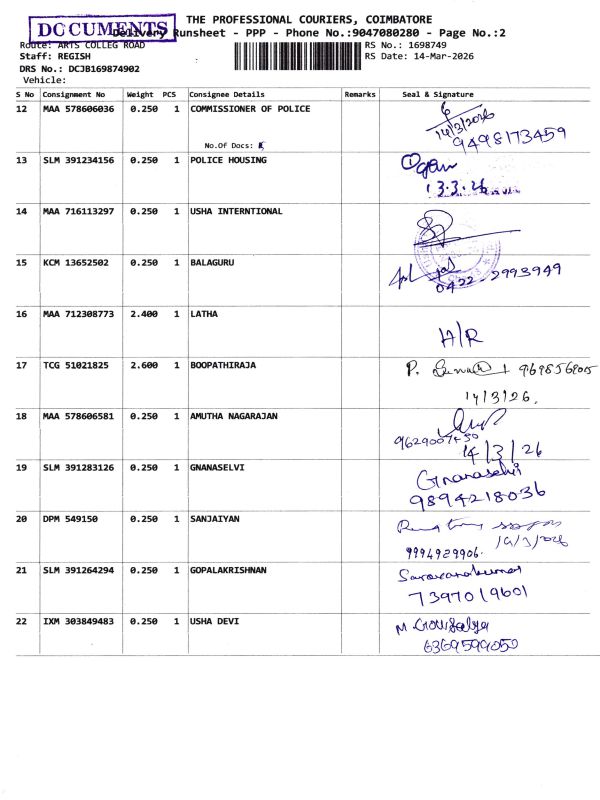 THE PROFESSIONAL COURIERS, COIMBATORE
DOCUMENTS
Delivery Runsheet - PPP - Phone No.:9047080280 - Page No.:2
Route: ARTS COLLEG ROAD
RS No.: 1698749
Staff: REGISH
RS Date: 14-Mar-2026
DRS No.: DCJB169874902
Vehicle:
S No Consignment No Weight PCS Consignee Details Remarks Seal & Signature
12 MAA 578606036 0.250 1 COMMISSIONER OF POLICE
14/3/2026
No.Of Docs:
9498173459
13 SLM 391234156 0.250 1 POLICE HOUSING
13.3.26
14 MAA 716113297 0.250 1 USHA INTERNTIONAL
15 KCM 13652502 0.250 1 BALAGURU
0422-2993949
16 MAA 712308773 2.400 1 LATHA
H/R
17 TCG 51021825 2.600 1 BOOPATHIRAJA
P.
14/3/26.
18 MAA 578606581 0.250 1 AMUTHA NAGARAJAN
14/3/26
19 SLM 391283126 0.250 1 GNANASELVI
Gnanaselvi
9894218036
20 DPM 549150 0.250 1 SANJAIYAN
14/3/2026
9994929906.
21 SLM 391264294 0.250 1 GOPALAKRISHNAN
Saravanakumar
7397019601
22 IXM 303849483 0.250 1 USHA DEVI
M.
6369599052